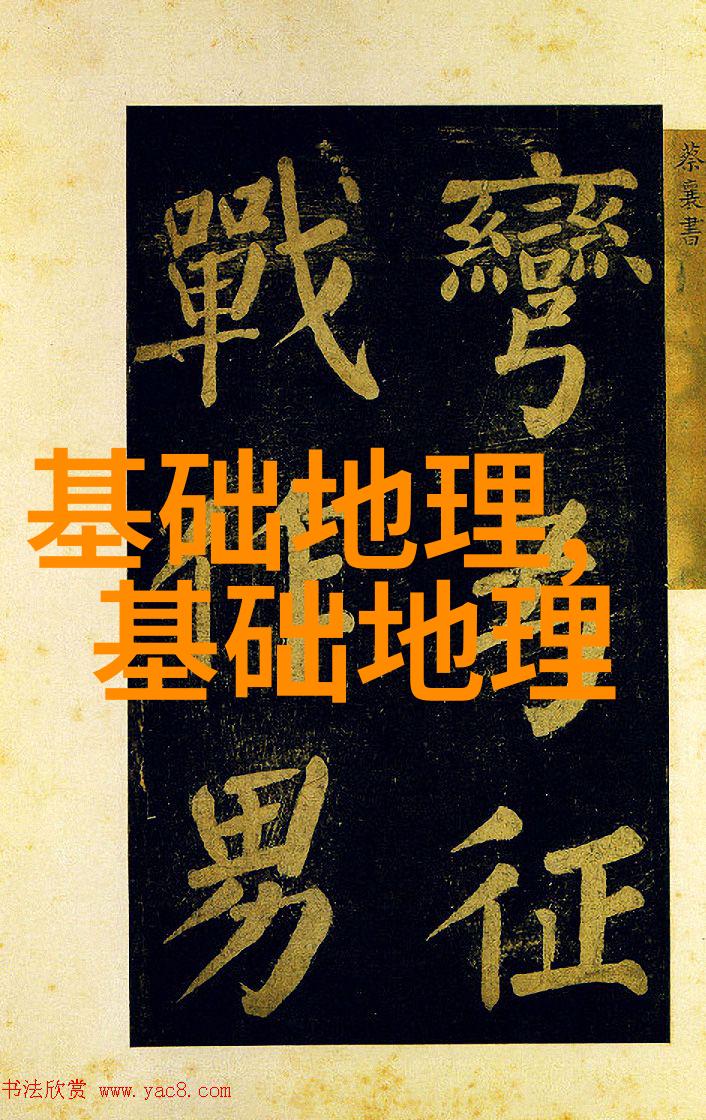 蔡襄書
彎 征
戰 男
基础地理,
基础地理
书法欣赏 www.yac8.com